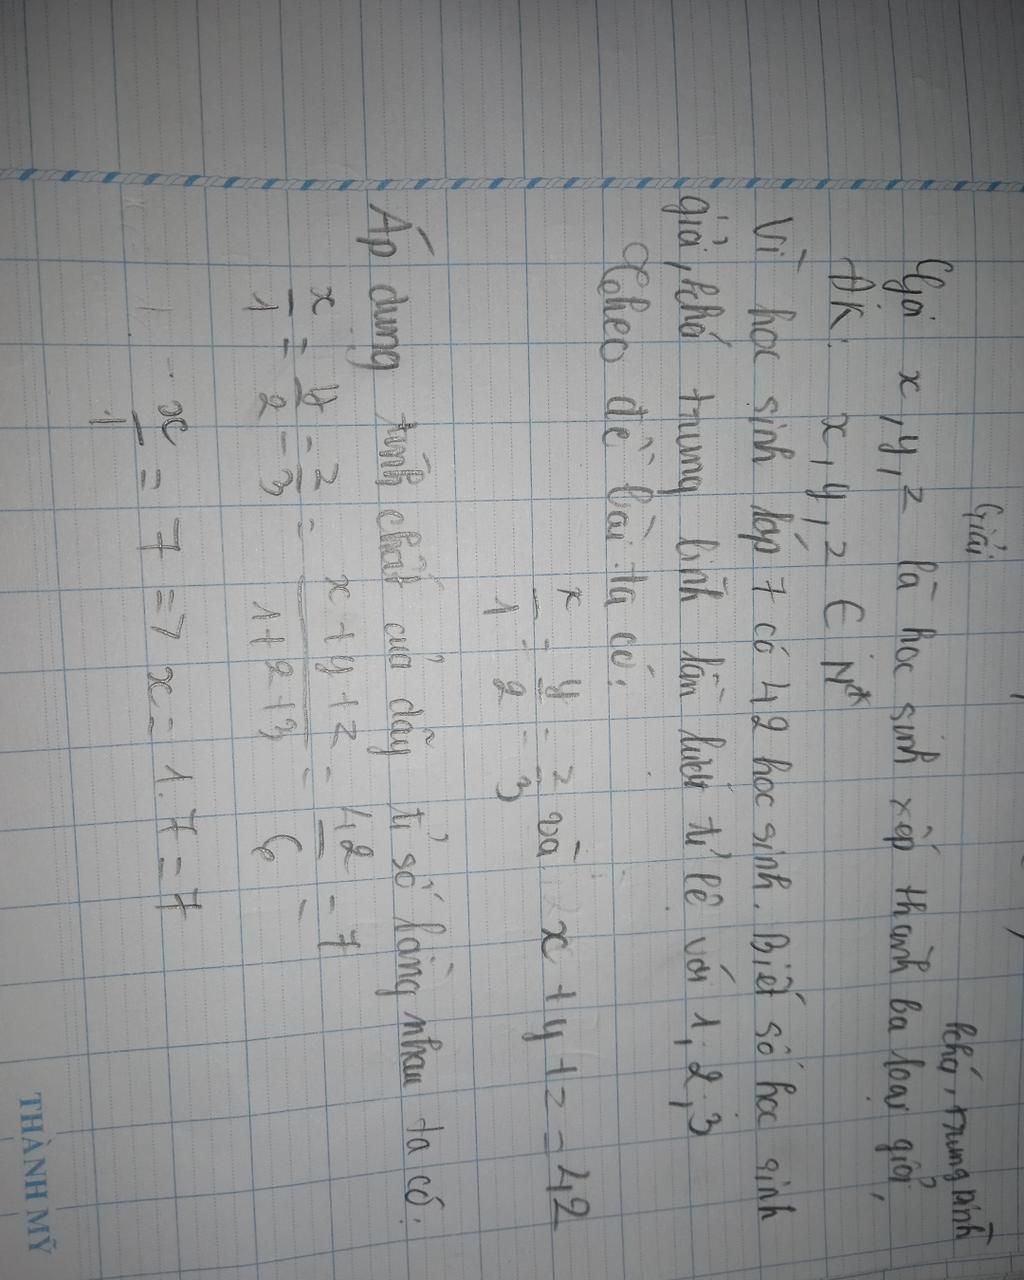 Giải
khá, trung bình
Gọi x, y, z là học sinh xếp thành ba loại giỏi,
ĐK: x, y, z ∈ N*
Vì học sinh lớp 7 có 42 học sinh. Biết số học sinh
giỏi, khá trung bình lần lượt tỉ lệ với 1, 2, 3
Theo đề bài ta có:
x/1 = y/2 = z/3 và x + y + z = 42
Áp dụng tính chất của dãy tỉ số bằng nhau ta có:
x/1 = y/2 = z/3 = x+y+z/1+2+3 = 42/6 = 7
x/1 = 7 => x = 1.7 = 7
THÀNH MỸ